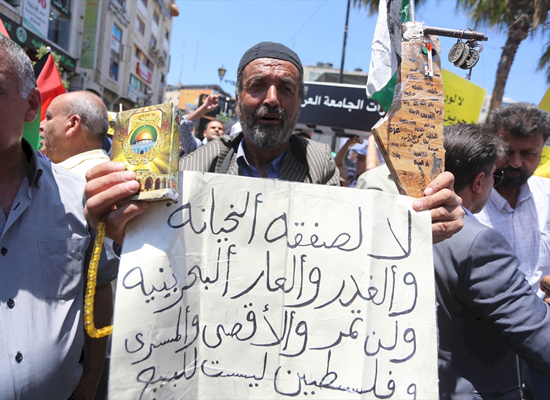 الجامعة
لا لصفقه ألخيانه
وألغدر وألعار ألبحرينيه
ولن تمر وألأقصى وألمسرى
وفلسطين ليست للبيع